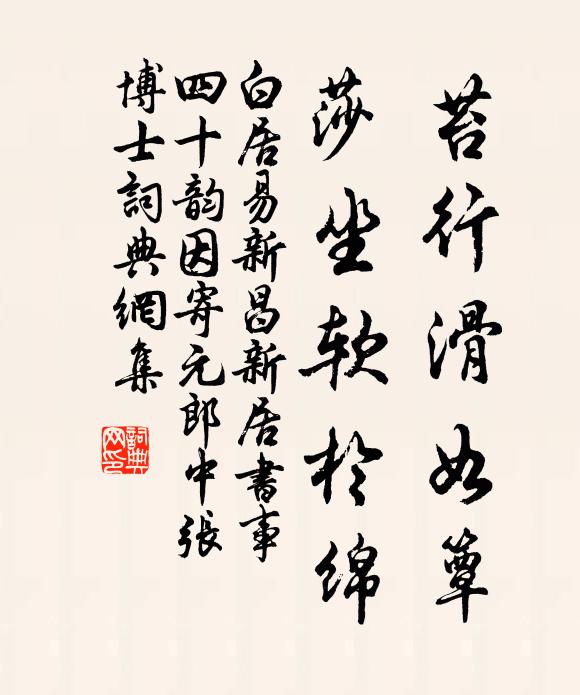 苔行滑如簟
莎坐软於绵
白居易新昌新居書事
四十韵因寄元郎中張
博士詞典網集
詞典網印